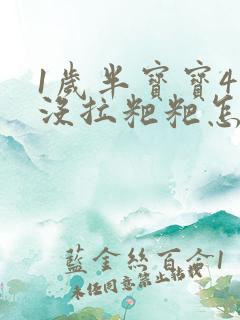 1歲半寶寶4
沒拉粑粑怎
藍金絲百合1
未经同意禁止转载